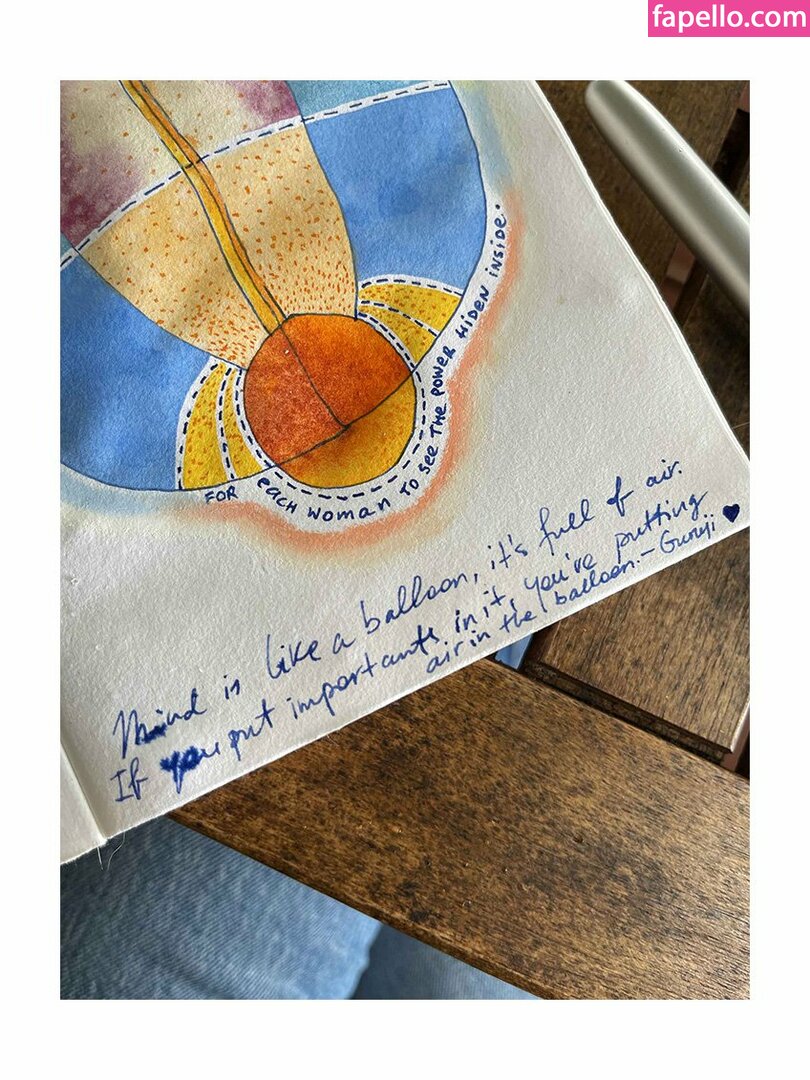 fapello.com
FOR each WOMAN TO see THE POWER HIDEN INSIDE.
Mind is like a balloon, it's full of air.
If you put importants in it, you've putting
air in the balloon. – Guruji ♥